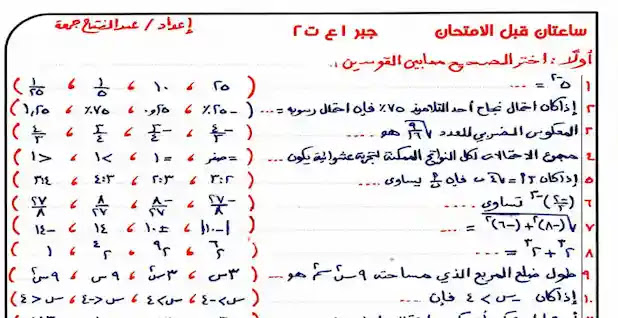 ساعتان قبل الامتحان جبر ١ع ت٢ إعداد / عبدالفتاح جمعة
أولاً: اختر الصحيح مما بين القوسين:
١ ٥⁻² = ... (٢٥ ، ١٠ ، ١/٥ ، ١/٢٥)
٢ إذا كان احتمال نجاح أحد التلاميذ ٧٥٪ فإن احتمال رسوبه = ... (٢٥٪ ، ٠,٢٥ ، ٧٥٪ ، ١,٢٥)
٣ المعكوس الضربي للعدد √(٩/١٦) هو ... (-٤/٣ ، -٣/٤ ، ٣/٤ ، ٤/٣)
٤ مجموع الاحتمالات لكل النواتج الممكنة لتجربة عشوائية يكون ... (= صفر ، = ١ ، > ١ ، < ١)
٥ إذا كان فإن يساوى ... (٣:٢ ، ٢:٣ ، ٤:٣ ، ٣:٤)
٦ تساوى ... (-٢٧/٨ ، -٨/٢٧ ، ٨/٢٧ ، ٢٧/٨)
٧ √((-٨)² + (-٦)²) = ... (|-١٠| ، ±١٠ ، ١٤ ، -١٤)
٨ ٢³ + ٢³ = ... (٢⁶ ، ٢⁹ ، ٢⁴ ، ١)
٩ طول ضلع المربع الذي مساحته ٩س² سم² هو ... (٣س ، ٣س² ، ٩س ، ٩س²)
١٠ إذا كان -س > ٤ فإن ... (س > -٤ ، س > ٤ ، س < -٤ ، س < ٤)